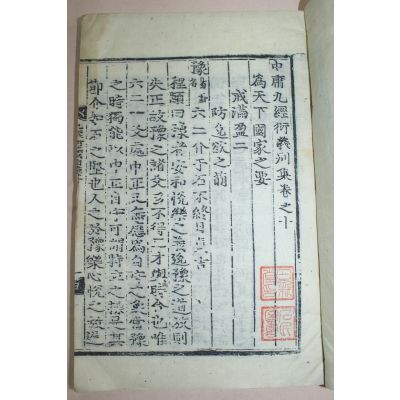 中庸九經衍義別集卷之十
為天下國家之要
戒滿盈二
防逸欲之萌
豫卦六二介于石不終日貞吉
程頤曰豫者安和悅樂之義逸豫之道放則
失正故豫之諸爻多不得正才與時合也唯
六二一爻處中正又无應為自守之象當豫
之時獨能以中正自守可謂特立之操是其
節介如石之堅也人之於豫樂心悅之故遲